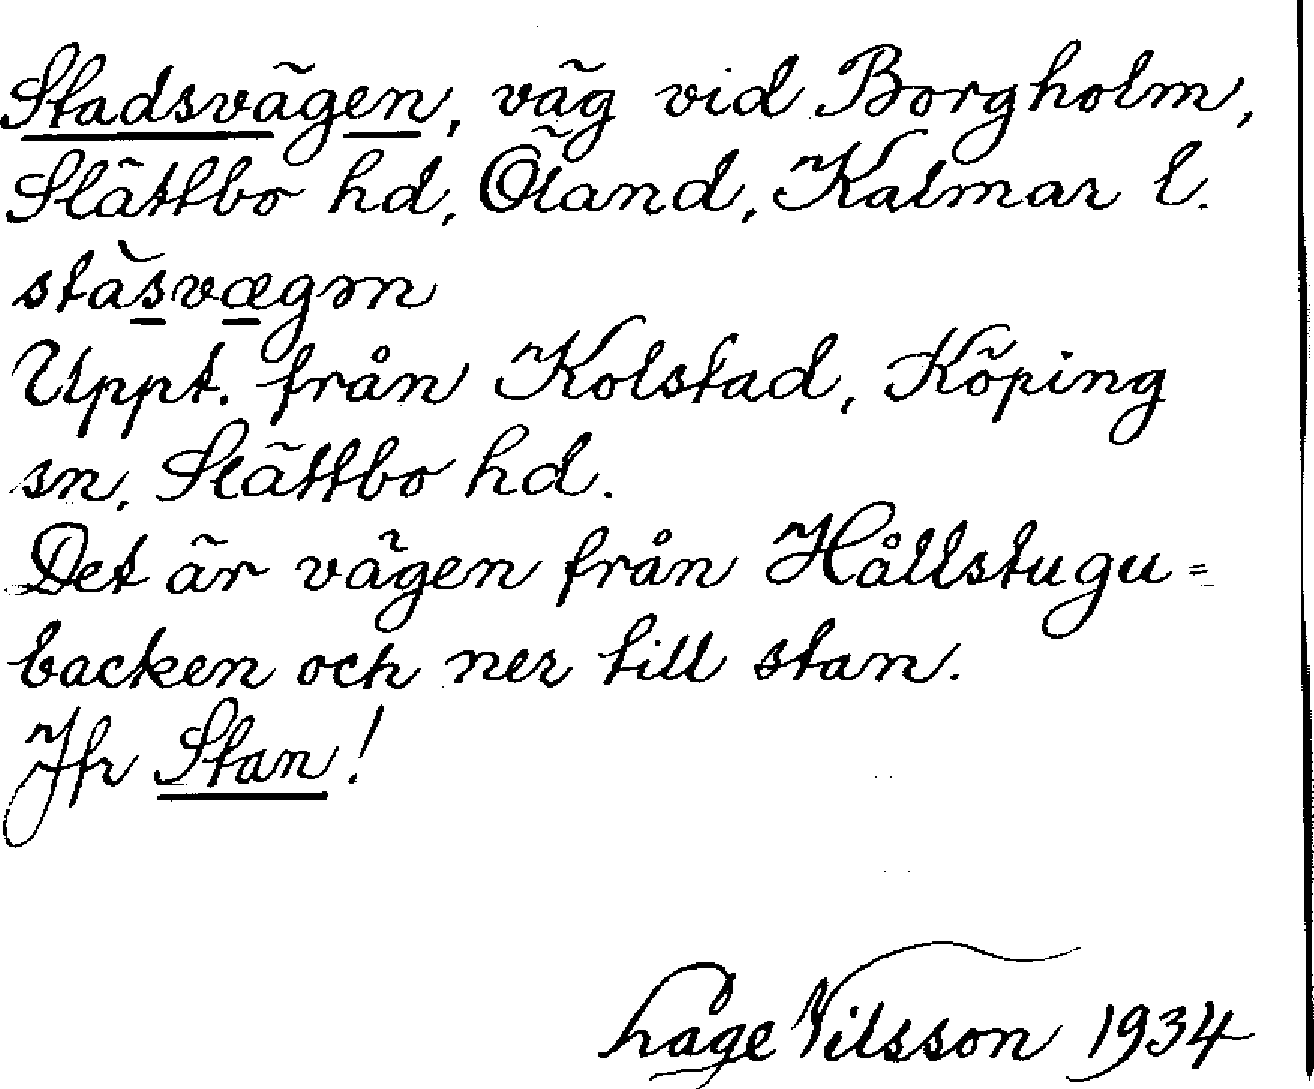 Stadsvägen, väg vid Borgholm,
Slättbo hd, Öland, Kalmar l.
stàsvægən
Uppt. från Kolstad, Köping
sn, Slättbo hd.
Det är vägen från Hållstugu=
backen och ner till stan.
Jfr Stan!
Låge Nilsson 1934